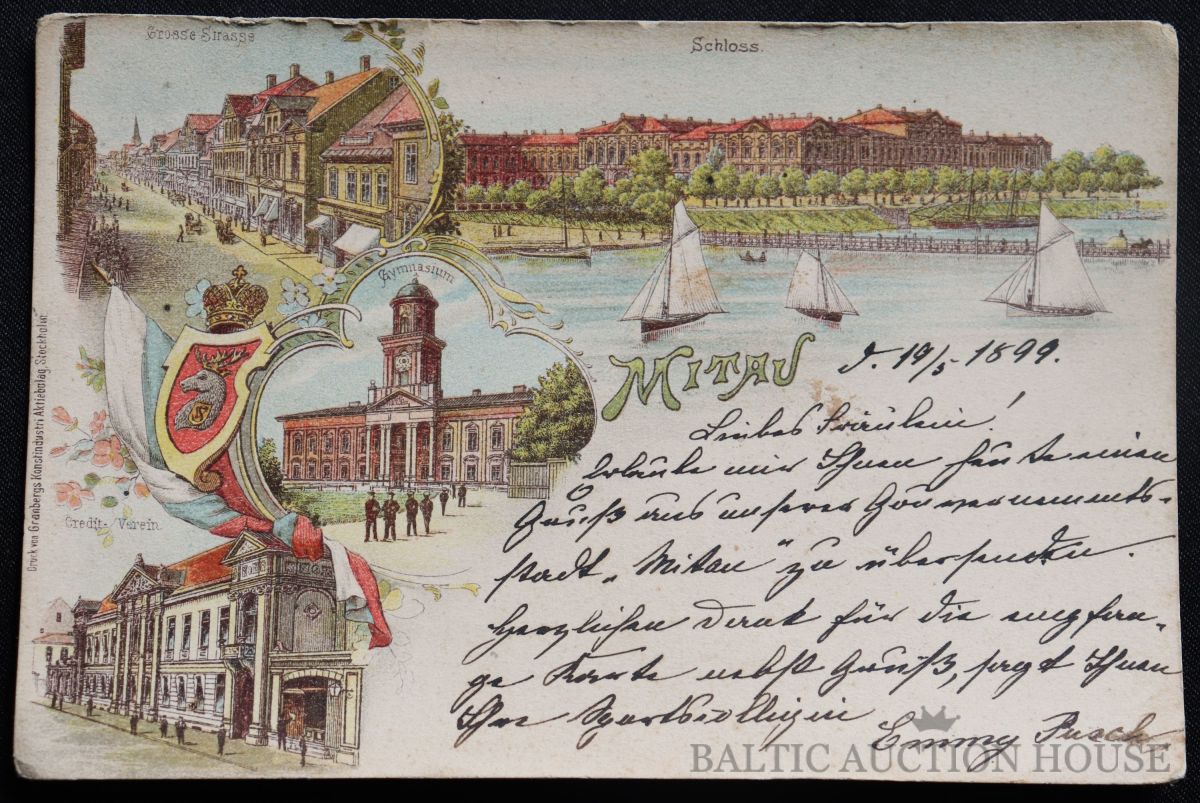 Grosse Strasse
Schloss.
Gymnasium
S
MITAU
Credit-Verein.
Druck von Granbergs Konstindustri Aktiebolag, Stockholm.
d. 19/5 1899.
Liebes Fräulein!
Erlaube mir Ihnen heute einen
Gruß aus unserer Gouvernemmts-
stadt „Mitau" zu übersenden.
Herzlichen Dank für die empfan-
ge Karte nebst Gruß, sagt Ihnen
Ihre Sportscollegin
Emmy Pusch.
BALTIC AUCTION HOUSE